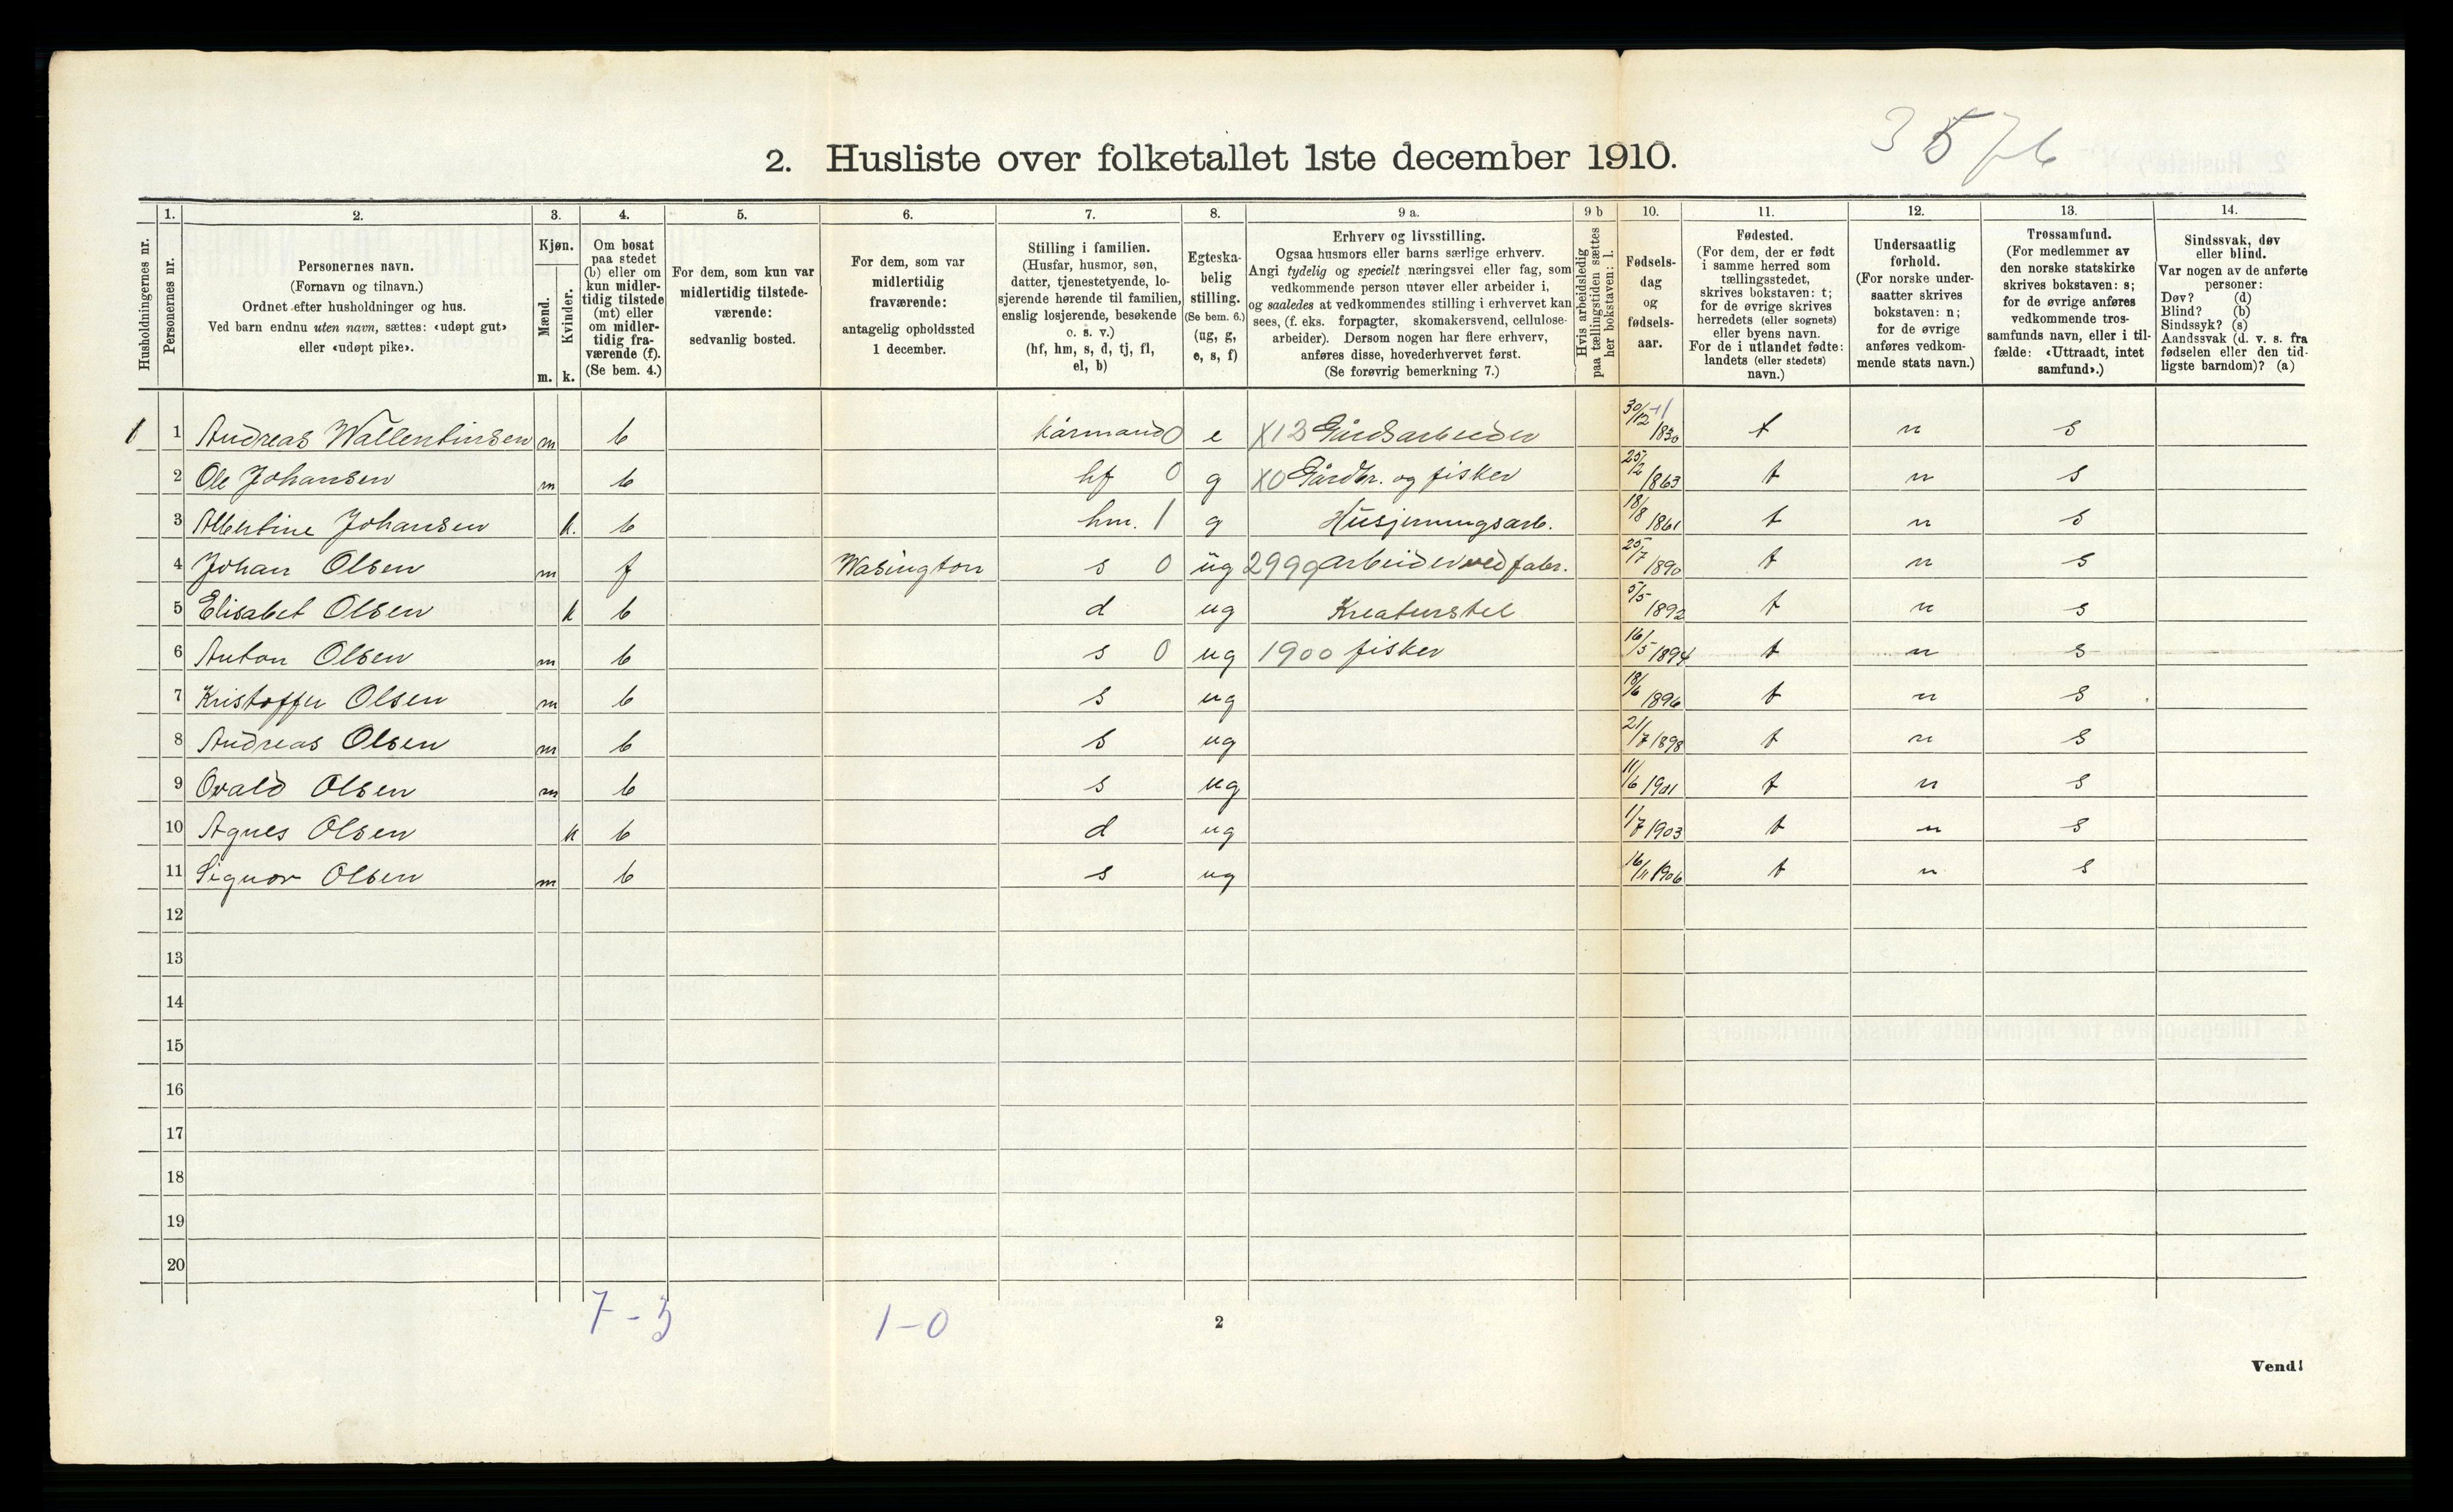 3576
2. Husliste over folketallet 1ste december 1910.
Husholdningernes nr.
1. Personernes nr.
2. Personernes navn.
(Fornavn og tilnavn.)
Ordnet efter husholdninger og hus.
Ved barn endnu uten navn, sættes: «udøpt gut»
eller «udøpt pike».
3. Kjøn.
Mænd. m.
Kvinder. k.
4. Om bosat
paa stedet
(b) eller om
kun midler-
tidig tilstede
(mt) eller
om midler-
tidig fra-
værende (f).
(Se bem. 4.)
5. For dem, som kun var
midlertidig tilstede-
værende:
sedvanlig bosted.
6. For dem, som var
midlertidig
fraværende:
antagelig opholdssted
1 december.
7. Stilling i familien.
(Husfar, husmor, søn,
datter, tjenestetyende, lo-
sjerende hørende til familien,
enslig losjerende, besøkende
o. s. v.)
(hf, hm, s, d, tj, fl,
el, b)
8. Egteska-
belig
stilling.
(Se bem. 6.)
(ug, g,
e, s, f)
9 a. Erhverv og livsstilling.
Ogsaa husmors eller barns særlige erhverv.
Angi tydelig og specielt næringsvei eller fag, som
vedkommende person utøver eller arbeider i,
og saaledes at vedkommendes stilling i erhvervet kan
sees, (f. eks. forpagter, skomakersvend, cellulose-
arbeider). Dersom nogen har flere erhverv,
anføres disse, hovederhvervet først.
(Se forøvrig bemerkning 7.)
9 b Hvis arbeidsledig
paa tællingstiden sættes
her bokstaven: l.
10. Fødsels-
dag
og
fødsels-
aar.
11. Fødested.
(For dem, der er født
i samme herred som
tællingsstedet,
skrives bokstaven: t;
for de øvrige skrives
herredets (eller sognets)
eller byens navn.
For de i utlandet fødte:
landets (eller stedets)
navn.)
12. Undersaatlig
forhold.
(For norske under-
saatter skrives
bokstaven: n;
for de øvrige
anføres vedkom-
mende stats navn.)
13. Trossamfund.
(For medlemmer av
den norske statskirke
skrives bokstaven: s;
for de øvrige anføres
vedkommende tros-
samfunds navn, eller i til-
fælde: «Uttraadt, intet
samfund».)
14. Sindssvak, døv
eller blind.
Var nogen av de anførte
personer:
Døv? (d)
Blind? (b)
Sindssyk? (s)
Aandssvak (d. v. s. fra
fødselen eller den tid-
ligste barndom)? (a)
1 1 Andreas Wallentinsen m b kårmand 0 e X13 Gårdsarbeider 30/12 1830 t n s
2 Ole Johansen m b hf 0 g X0 Gårdbr. og fisker 25/2 1863 t n s
3 Albertine Johansen k. b hm. 1 g Husjerningsarb. 18/8 1861 t n s
4 Johan Olsen m f Wasington s 0 ug 2999 arbeider ved fabr. 25/7 1890 t n s
5 Elisabet Olsen k b d ug Kreaturstel 5/5 1892 t n s
6 Anton Olsen m b s 0 ug 1900 fisker 16/5 1894 t n s
7 Kristoffer Olsen m b s ug 18/6 1896 t n s
8 Andreas Olsen m b s ug 21/7 1898 t n s
9 Ovald Olsen m b s ug 11/6 1901 t n s
10 Agnes Olsen k b d ug 1/7 1903 t n s
11 Signor Olsen m b s ug 16/11 1906 t n s
12
13
14
15
16
17
18
19
20
7-3 1-0
2
Vend!